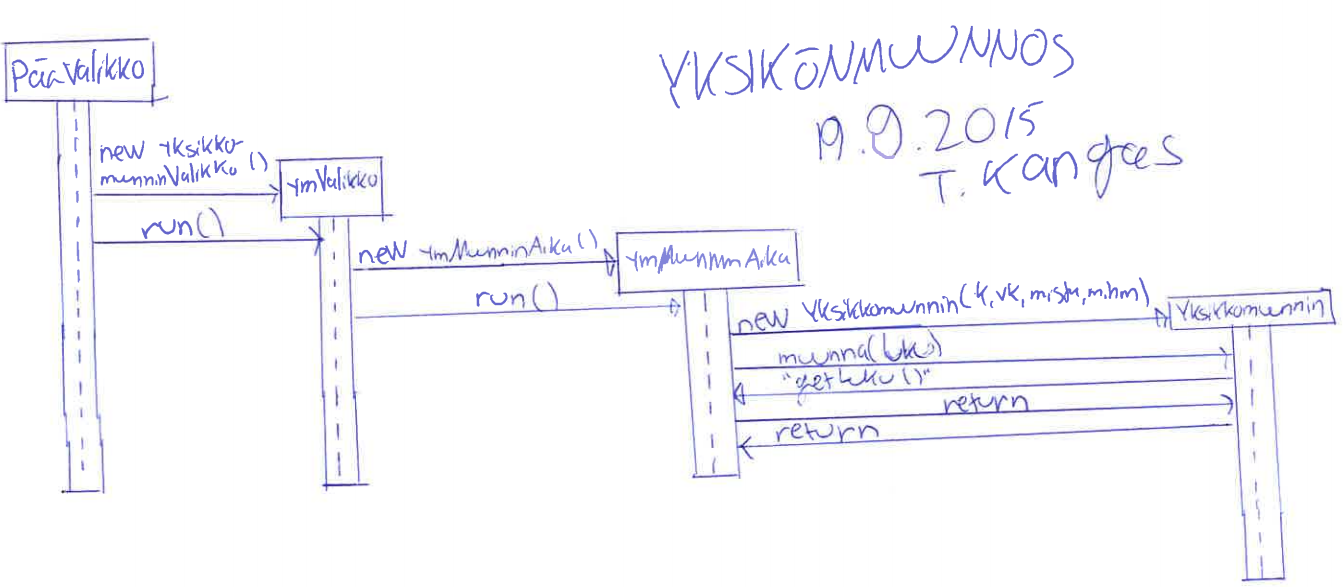 YKSIKÖNMUUNNOS
19.9.2015
T. Kangas
PääValikko
new Yksikkö-
munninValikko()
ymValikko
run()
new ymMunninAika()
ymMunninAika
run()
new Yksikkomunnin(k, vk, mistä, mihin)
Yksikkomunnin
muunna(luku)
"getLuku()"
return
return